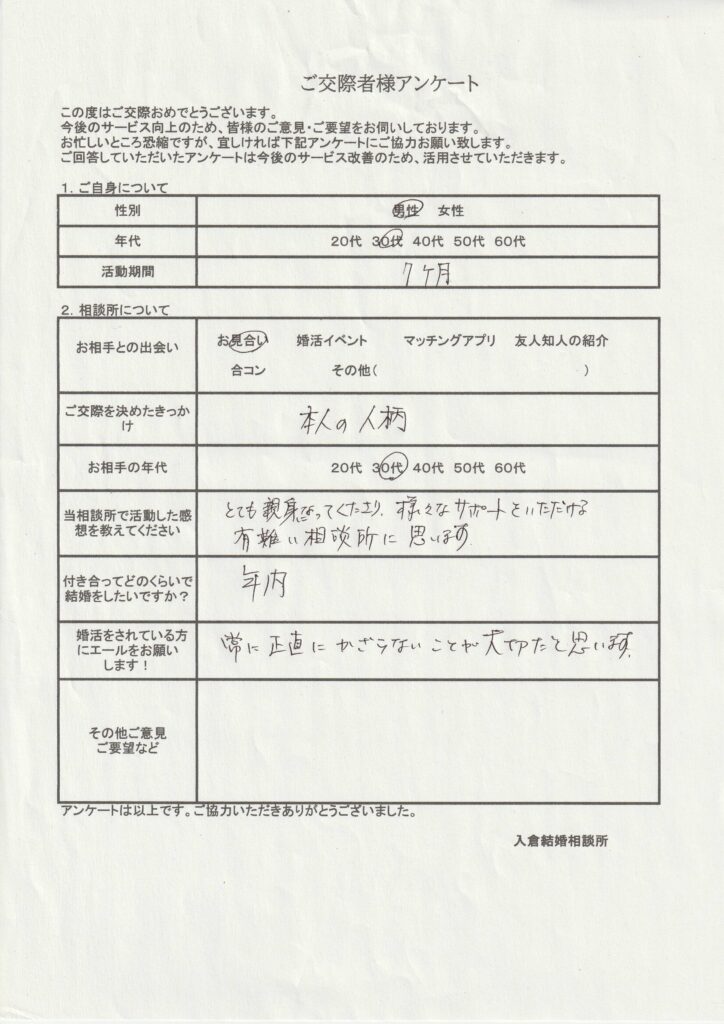 ご交際者様アンケート
この度はご交際おめでとうございます。
今後のサービス向上のため、皆様のご意見・ご要望をお伺いしております。
お忙しいところ恐縮ですが、宜しければ下記アンケートにご協力お願い致します。
ご回答していただいたアンケートは今後のサービス改善のため、活用させていただきます。
1. ご自身について
性別 男性 女性
年代 20代 30代 40代 50代 60代
活動期間 7ヶ月
2. 相談所について
お相手との出会い お見合い 婚活イベント マッチングアプリ 友人知人の紹介
合コン その他( )
ご交際を決めたきっか
け
本人の人柄
お相手の年代 20代 30代 40代 50代 60代
当相談所で活動した感
想を教えてください
とても親身になってくださり、様々なサポートをいただける
有難い相談所に思います。
付き合ってどのくらいで
結婚をしたいですか？
年内
婚活をされている方
にエールをお願い
します！
常に正直にかざらないことが大切だと思います。
その他ご意見
ご要望など
アンケートは以上です。ご協力いただきありがとうございました。
入倉結婚相談所